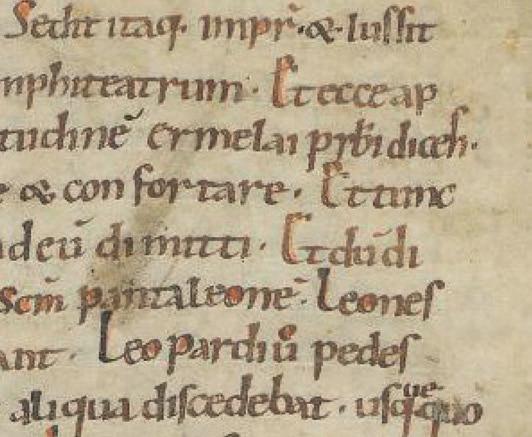 Secht itaq. impr̄. & Iussit
mphiteatrum. Et ecce ap
tudinē ermelai prbi dicen.
& confortare. Et tunc
deū dimitti. Et dū di
scm̄ pantaleonē. Leones
ant. Leopardi ū pedes
aliqua discedebat. usq;quo